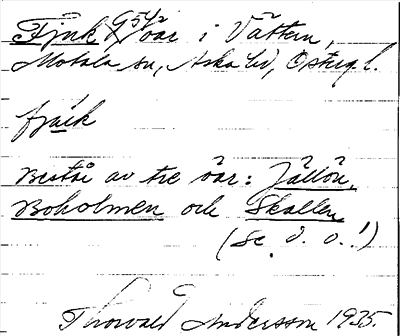 Fjuk G542 öar i Vättern,
Motala sn, Aska hd, Östergl.
fjùk
Består av tre öar: Jällön,
Boholmen och Skallen
(Se d. o.!)
Thorvald Andersson 1935.